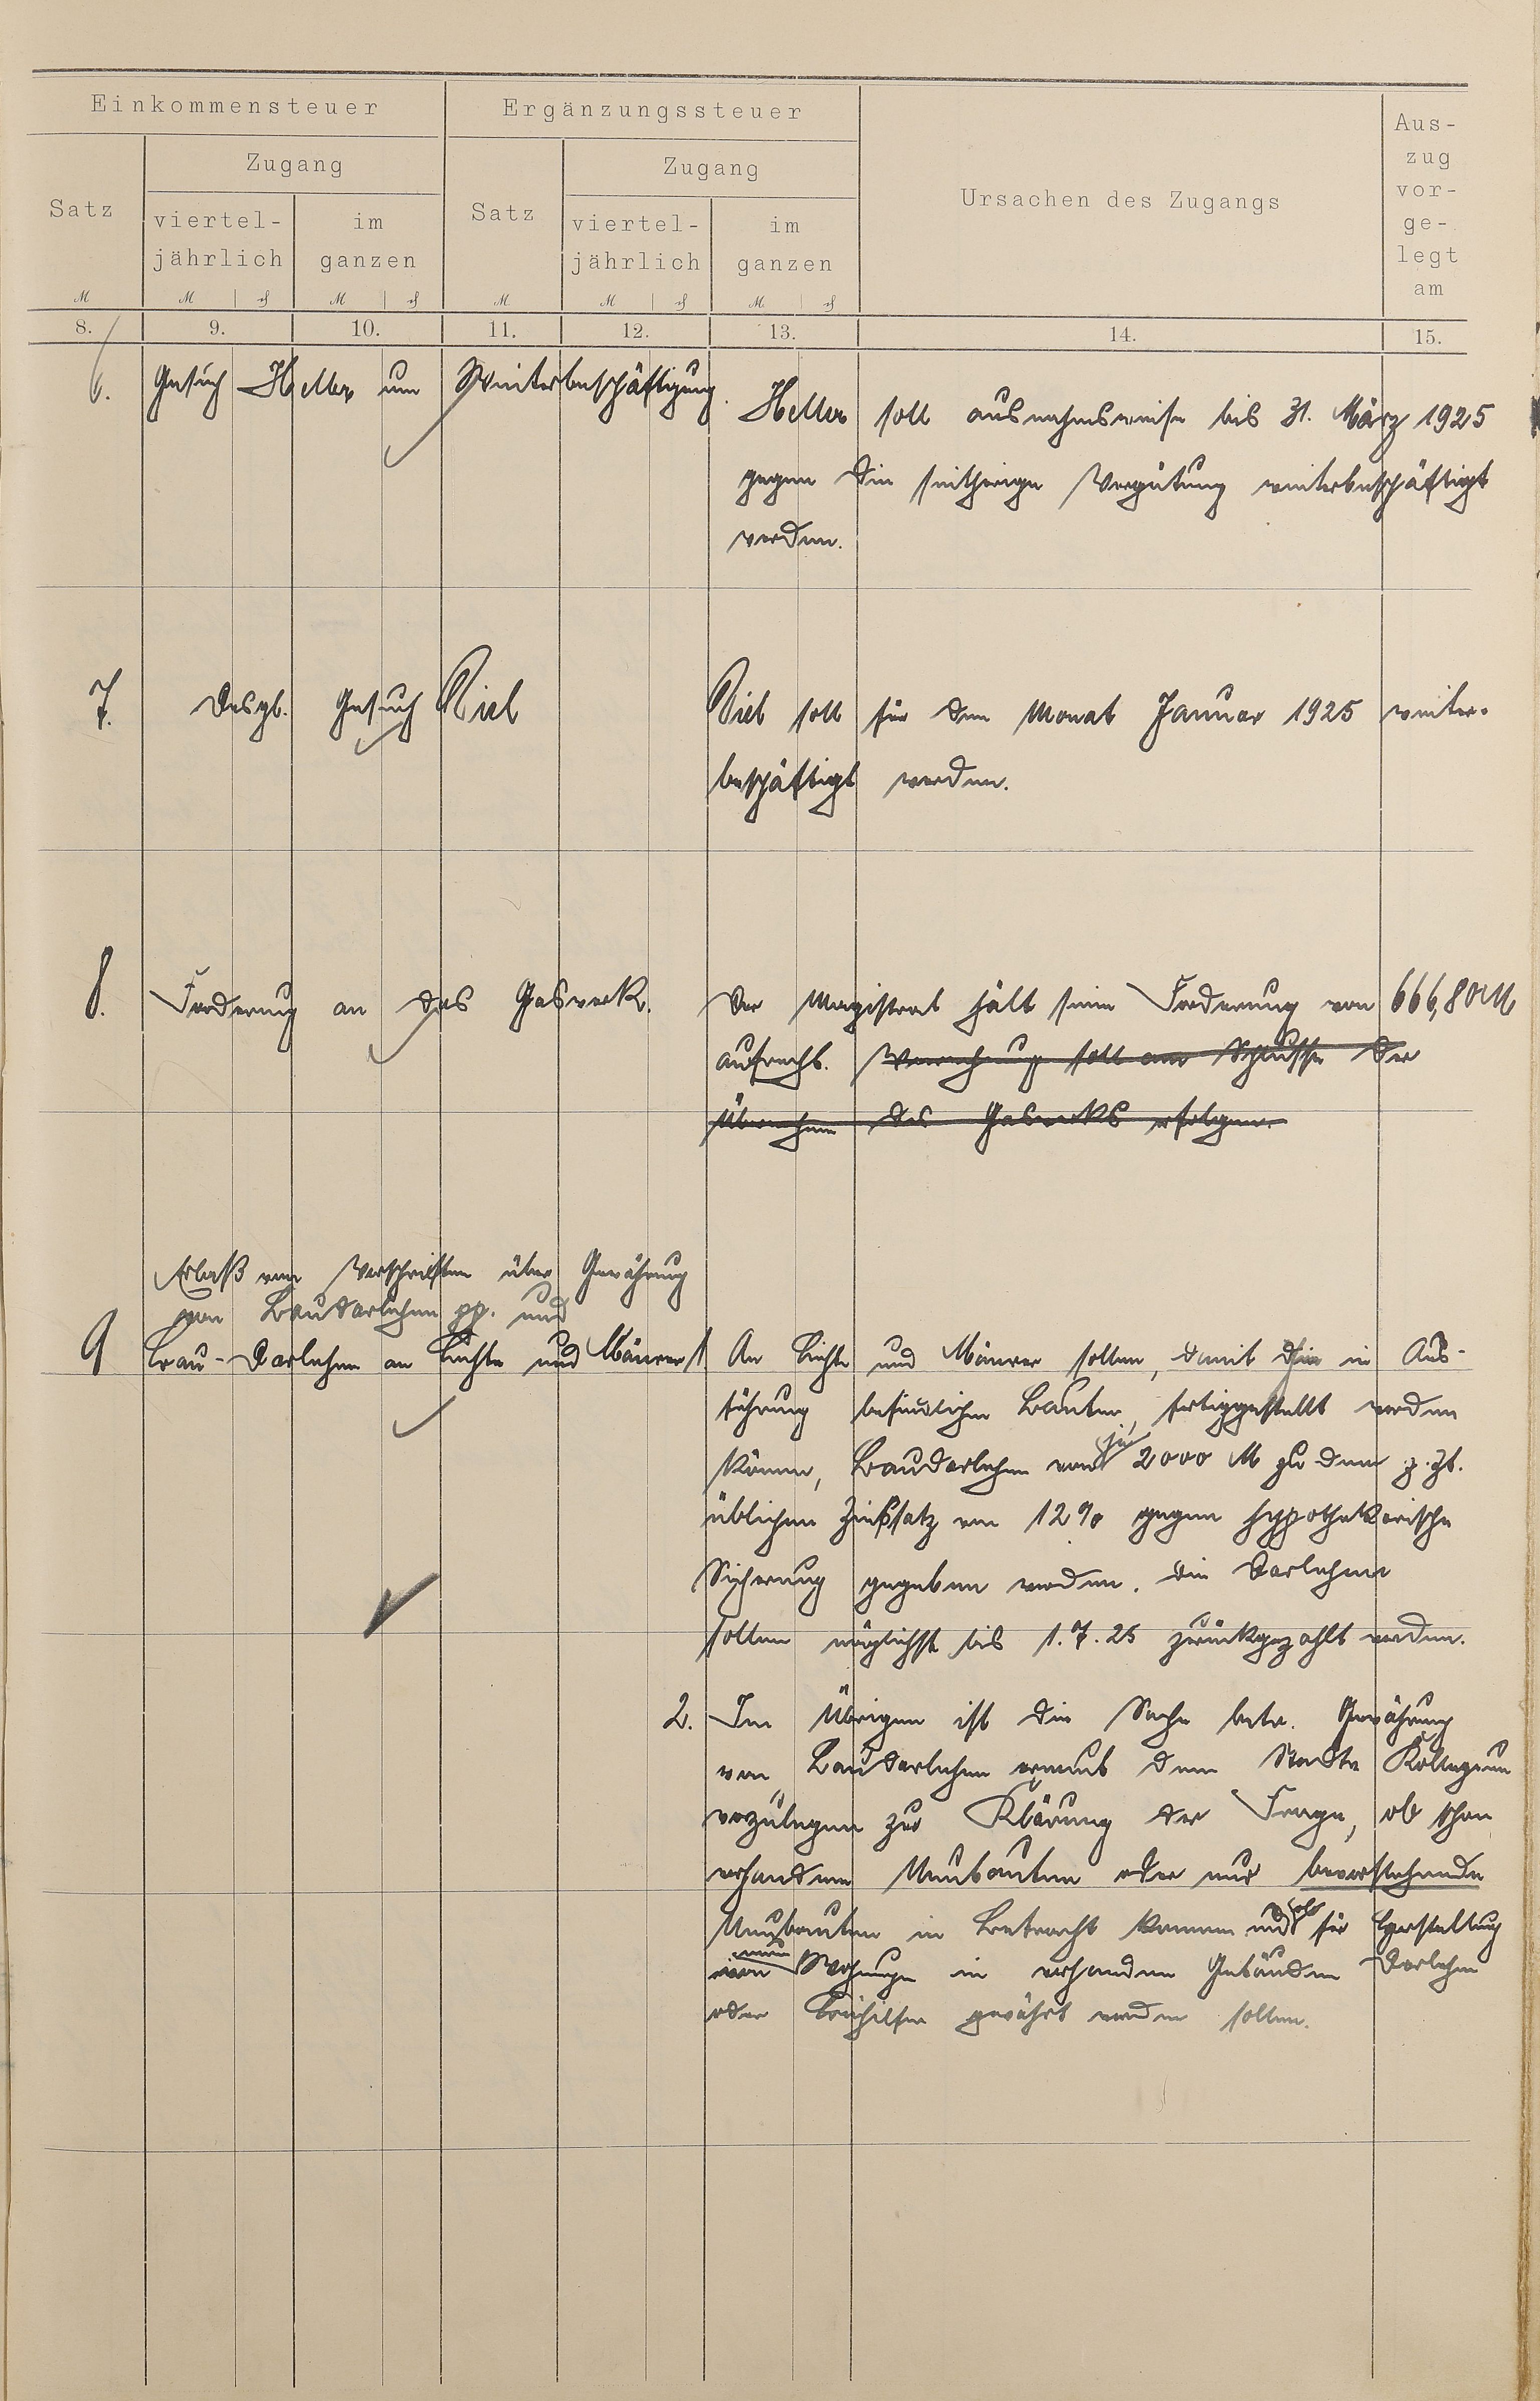 Einkommensteuer
Ergänzungssteuer
Satz
Zugang
Satz
Zugang
Ursachen des Zugangs
Aus-
zug
vor-
ge-
legt
am
viertel-
jährlich
im
ganzen
viertel-
jährlich
im
ganzen
M
M
₰
M
₰
M
M
₰
M.
₰
8.
9.
10.
11.
12.
13.
14.
15.
6.
Gesuch Heller um Weiterbeschäftigung.
Heller soll ausnahmsweise bis 31. März 1925
gegen die seitherige Vergütung weiterbeschäftigt
werden.
7.
Desgl. Gesuch Diel
Diel soll für den Monat Januar 1925 weiter-
beschäftigt werden.
8.
Forderung an das Gaswerk.
Der Magistrat hält seine Forderung von 666,80 M
aufrecht. Verrechnung soll am Schlusse der
Übernahme des Gaswerks erfolgen.
Erlaß von Vorschriften über Gewährung
von Baudarlehen pp. und
9
Bau-Darlehen an Lichte und Mäurer
1 An Lichte und Mäurer sollen, damit die in Aus-
führung befindlichen Bauten, fertiggestellt werden
können, Baudarlehen von je 2000 M zu dem z. Zt.
üblichen Zinßsatz von 12% gegen hypothekarische
Sicherung gegeben werden. Die Darlehen
sollen möglichst bis 1.7.25 zurückgezahlt werden.
2. Im Übrigen ist die Sache betr. Gewährung
von Baudarlehen erneut dem Stadtv Kollegium
vorzulegen zur Klärung der Frage, ob schon
vorhandene Neubauten oder nur bevorstehende
Neubauten in Betracht kommen und ob für Herstellung
von neuen Wohnungen in vorhandenen Gebäuden Darlehen
oder Beihilfen gewährt werden sollen.